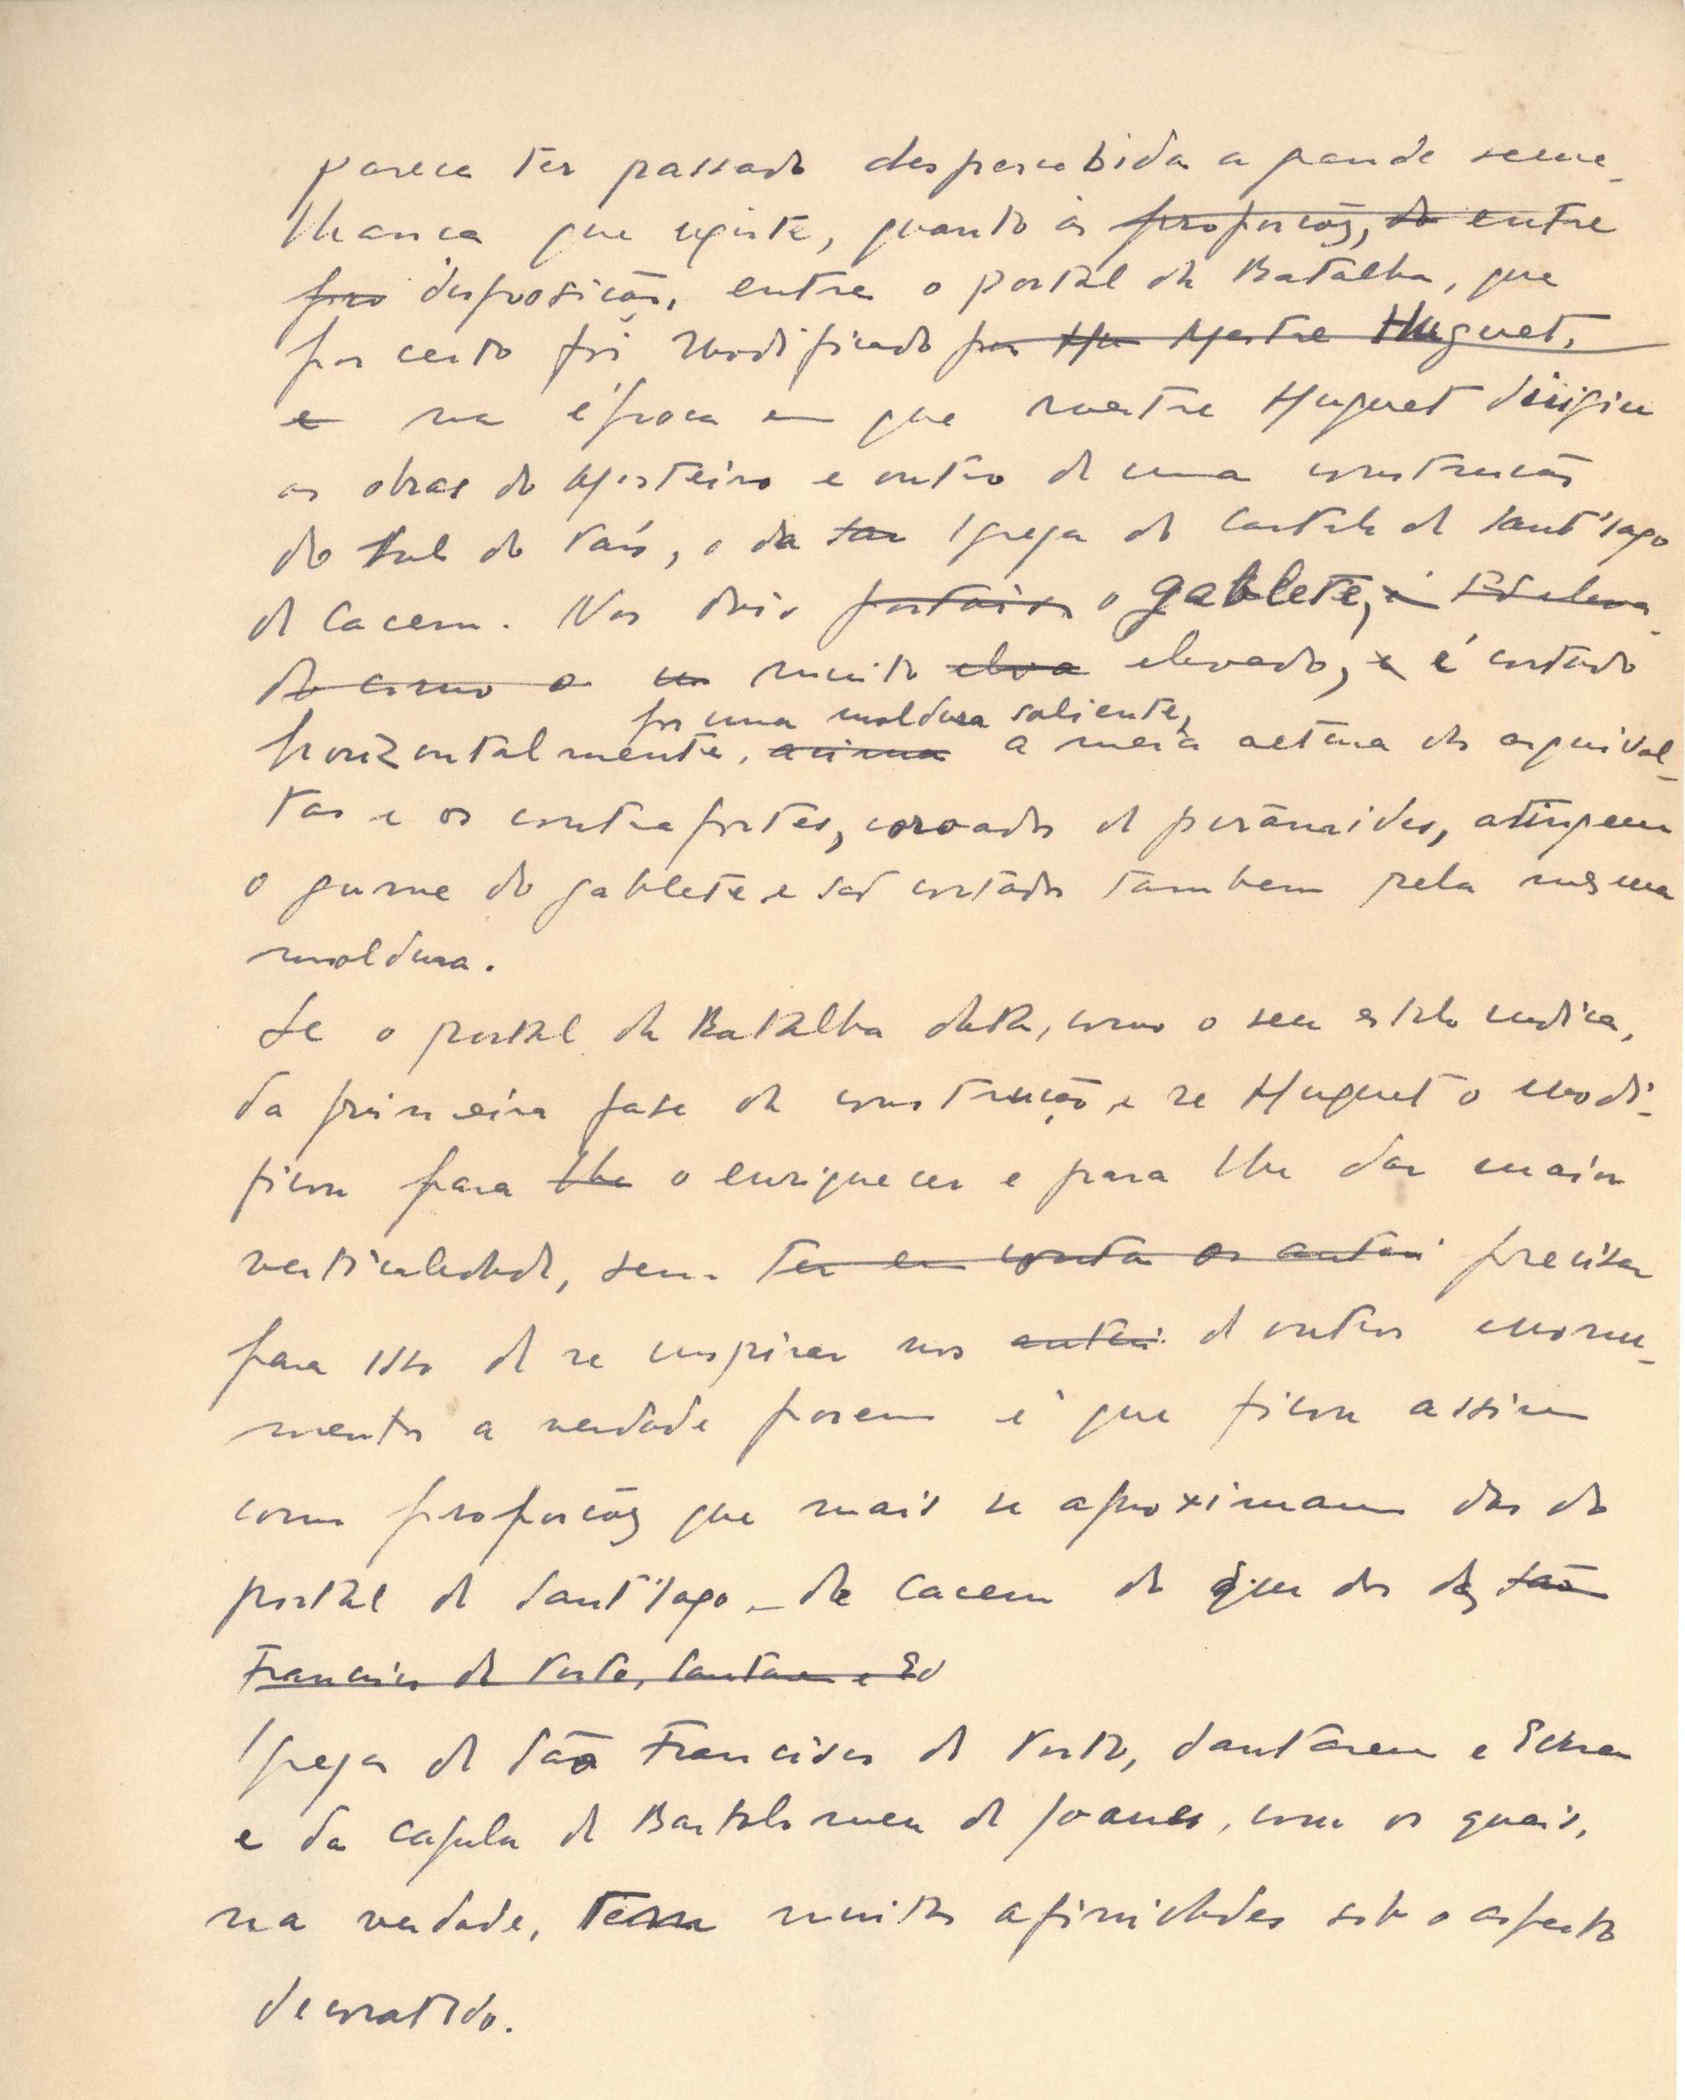 parece ter passado despercebida a grande seme-
lhança que existe, quanto às proporções, do entre
pro disposição, entre o portal da Batalha, que
por certo foi modificado por Hu Mestre Huguet,
e na época em que mestre Huguet dirigiu
as obras do Mosteiro e outro de uma construção
do sul do País, o da Igreja do Castelo de Sant'Iago
de Cacem. Nos dois portais o gablete,
do como o um muito eleva elevado, e é cortado
por uma moldura saliente,
horizontalmente, acima a meia altura das arquivol-
tas e os contrafortes, coroados de pirâmides, atingem
o gume do gablete e são cortados tambem pela mesma
moldura.
Se o portal da Batalha data, como o seu estilo indica,
da primeira fase da construção e se Huguet o modi-
ficou para lhe o enriquecer e para lhe dar maior
verticalidade, sem ter em conta os anteri precisar
para isso de se inspirar nos anteri de outros monu-
mentos a verdade porem é que ficou assim
com proporções que mais se aproximam das do
portal de Sant'Iago de Cacem do que das das São
Francisco do Porto, Santarem e Ev
Igrejas de São Francisco do Porto, Santarem e Evora
e da capela de Bartolomeu de Joanes, com os quais,
na verdade, tem muitas afinidades sob o aspecto
decorativo.